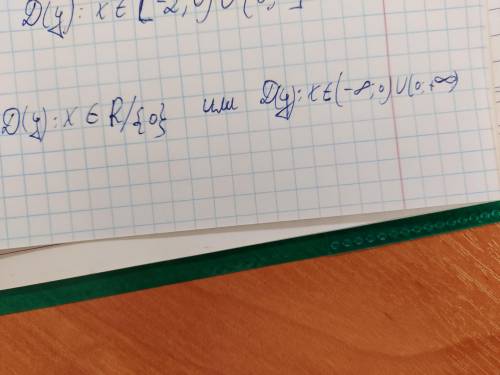 D(y): x ∈ [-2; 0) ∪ (0;
D(y): x ∈ R/{0} или D(y): x ∈ (-∞; 0) ∪ (0; +∞)